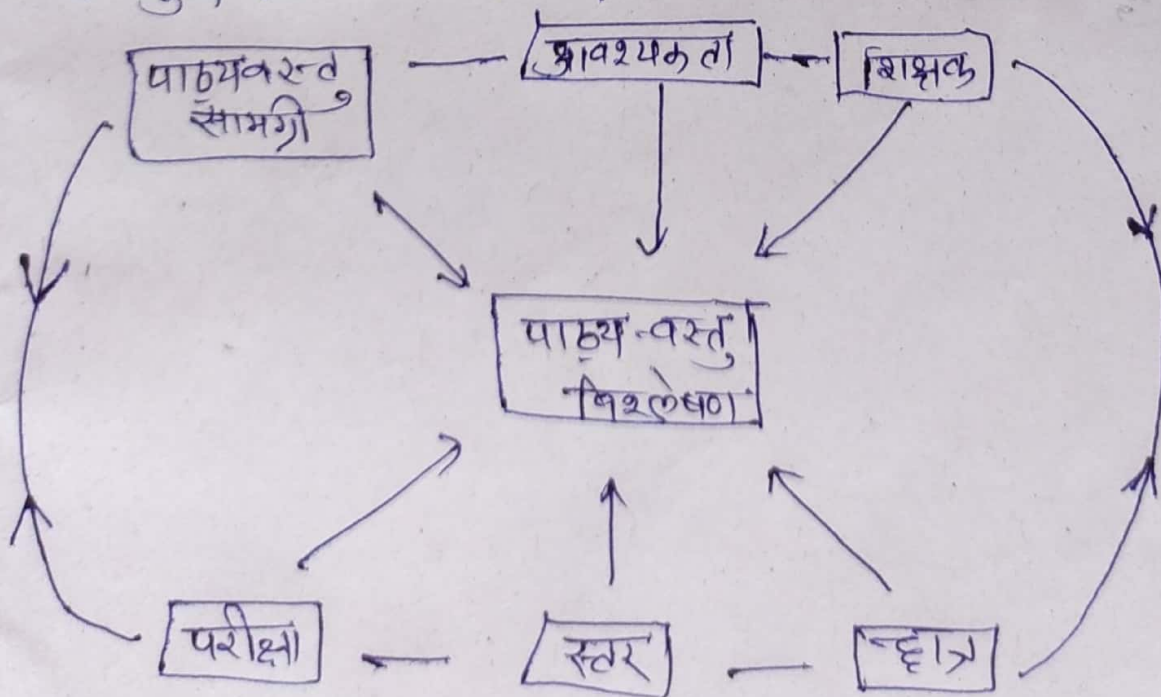 पाठ्यवस्तु
सामग्री
आवश्यकता
शिक्षक
पाठ्य-वस्तु
विश्लेषण
परीक्षा
स्तर
छात्र